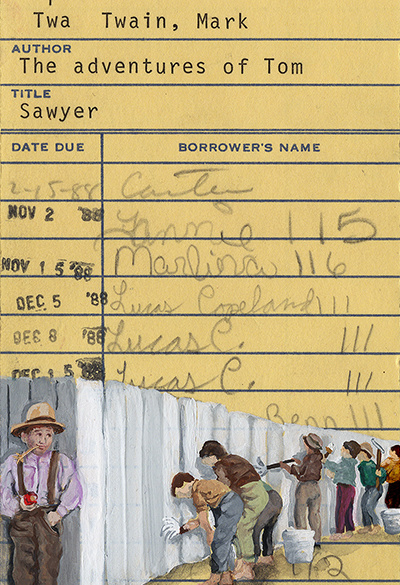 Twa Twain, Mark
AUTHOR
The adventures of Tom
TITLE
Sawyer
DATE DUE BORROWER'S NAME
2-15-88 Carter
NOV 2 '88 Fannie 115
NOV 15 '88 116
DEC. 5 '88 Lucas Copeland 111
DEC 8 '88 Lucas C. 111
DEC 15 '88 Lucas C. 111
Benn 111
1-2